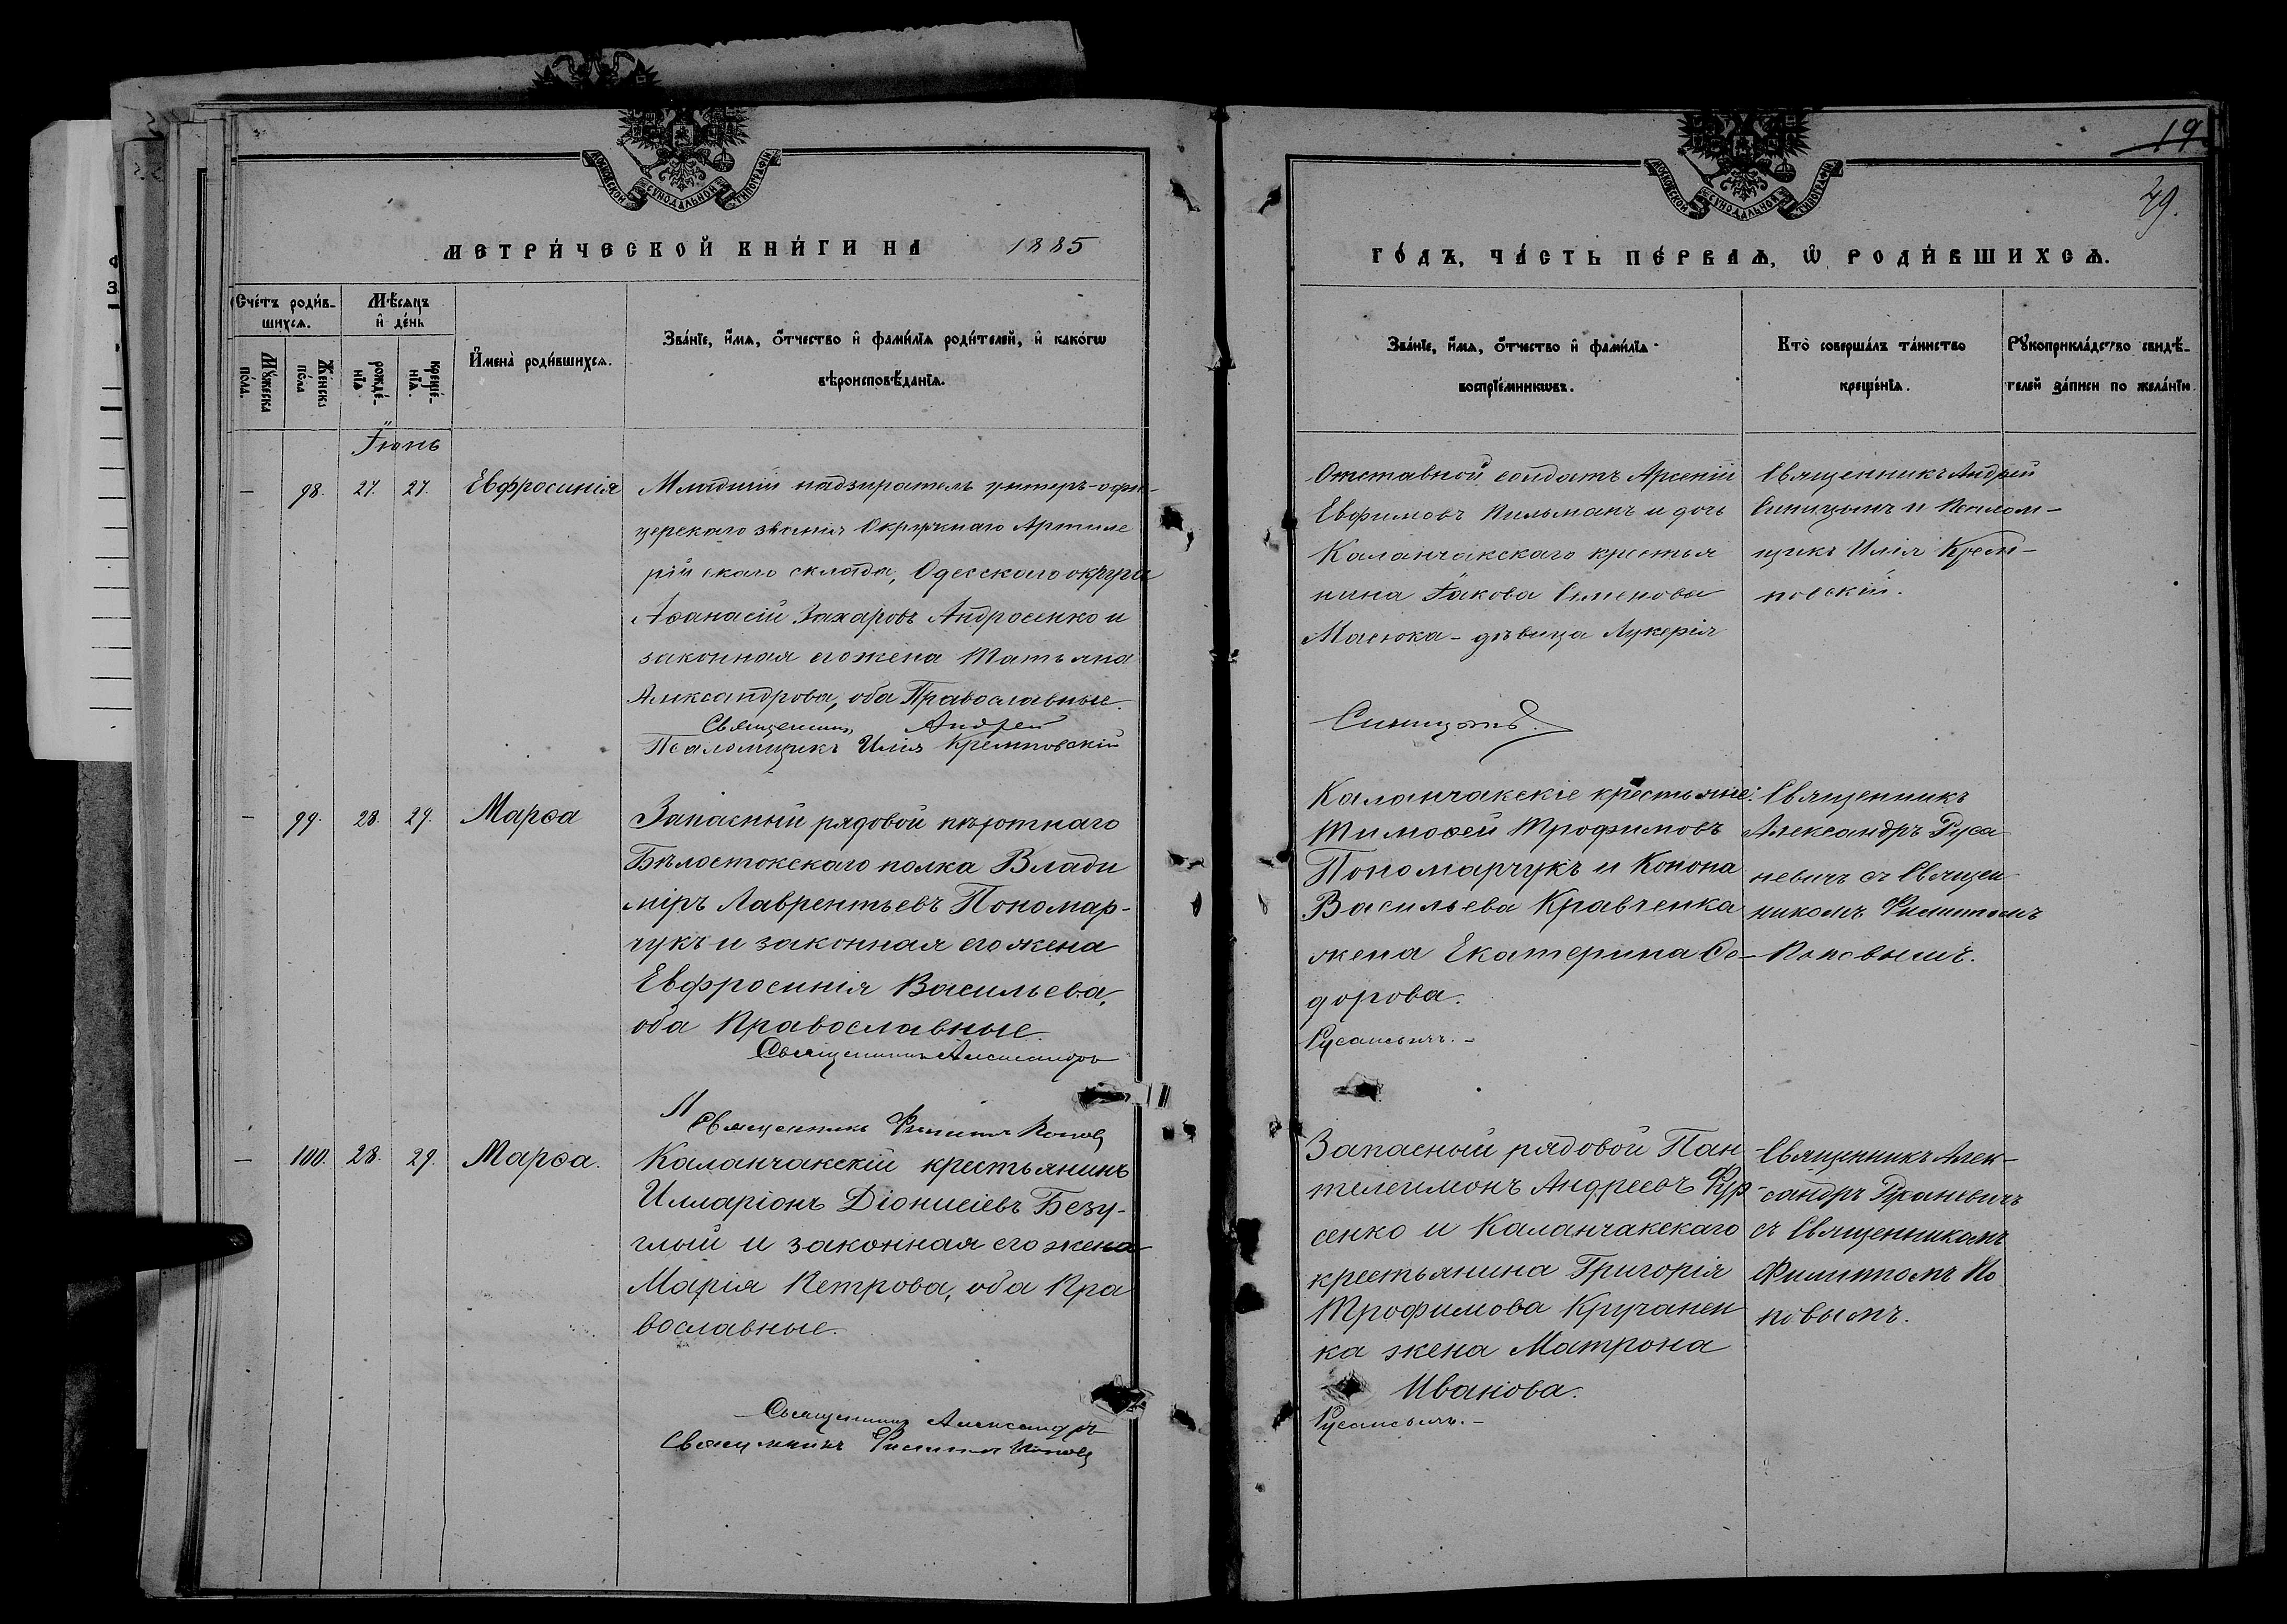 МОСКОВСКОЙ СѴНОДАЛЬНОЙ ТИПОГРАФІИ
МЕТРИ́ЧЕСКОЙ КНИ́ГИ НА 1885
Сче́тъ роди́в-
шихсѧ.
Мꙋ́жеска
пола.
Же́нска
по́ла
Мѣ́сяцъ
и҆ де́нь
рожде́-
нїѧ.
креще́-
нїѧ.
И҆мена̀ роди́вшихсѧ.
Зва́нїе, и҆́мѧ, ѻ҆́тчество и҆ фами́лїѧ роди́телей, и҆ како́гѡ
вѣроисповѣ́данїѧ.
Іюнь
— 98. 27. 27. Евфросинія
Младшій надзиратель унтеръ-офи-
церскаго званія Окружнаго Артиле
рійскаго склада, Одесскаго округа
Аѳанасій Захаровъ Андросенко и
законная его жена Татьяна
Александрова, оба Православные.
Священникъ Андрей
Псаломщикъ Илія Кремповскій
— 99. 28. 29. Марѳа
Запасный рядовой пѣхотнаго
Бѣлостокскаго полка Влади
міръ Лаврентьевъ Пономар-
чукъ и законная его жена
Евфросинія Васильева,
оба Православные.
Священникъ Александръ
Священникъ Филиппъ Поповъ
— 100. 28. 29. Марѳа.
Каланчакскій крестьянинъ
Илларіонъ Діонисіевъ Безу-
глый и законная его жена
Марія Петрова, оба Пра
вославные.
Священникъ Александръ
Священникъ Филиппъ Поповъ
МОСКОВСКОЙ СѴНОДАЛЬНОЙ ТИПОГРАФІИ
19
49.
ГО́ДЪ, ЧА́СТЬ ПЕ́РВАѦ, Ѡ҆ РОДИ́ВШИХСѦ.
Зва́нїе, и҆́мѧ, ѻ҆́тчество и҆ фами́лїѧ
воспрїе́мникѡвъ.
Кто̀ соверша́лъ та́инство
креще́нїѧ.
Рꙋкоприкла́дство свидѣ́-
телей за́писи по жела́нїю.
Отставной солдатъ Арсеній
Евфимовъ Пильманъ и дочь
Каланчакскаго крестья
нина Іакова Семенова
Масюка - дѣвица Лукерія
Синицынъ.
Священникъ Андрей
Синицынъ и Псалом-
щикъ Илія Кремп-
повскій.
Каланчакскіе крестьяне:
Тимоѳей Трофимовъ
Пономарчукъ и Конона
Васильева Кравченка
жена Екатерина Ѳе-
дорова.
Русаневичъ.-
Священникъ
Александръ Руса
невичъ съ Священ
никомъ Филиппомъ
Поповымъ.
Запасный рядовой Пан
телеимонъ Андреевъ Фур-
сенко и Каланчакскаго
крестьянина Григорія
Трофимова Кручанен
ка жена Матрона
Иванова.
Русаневичъ.-
Священникъ Алек-
сандръ Русаневичъ
съ Священникомъ
Филиппомъ По
повымъ.